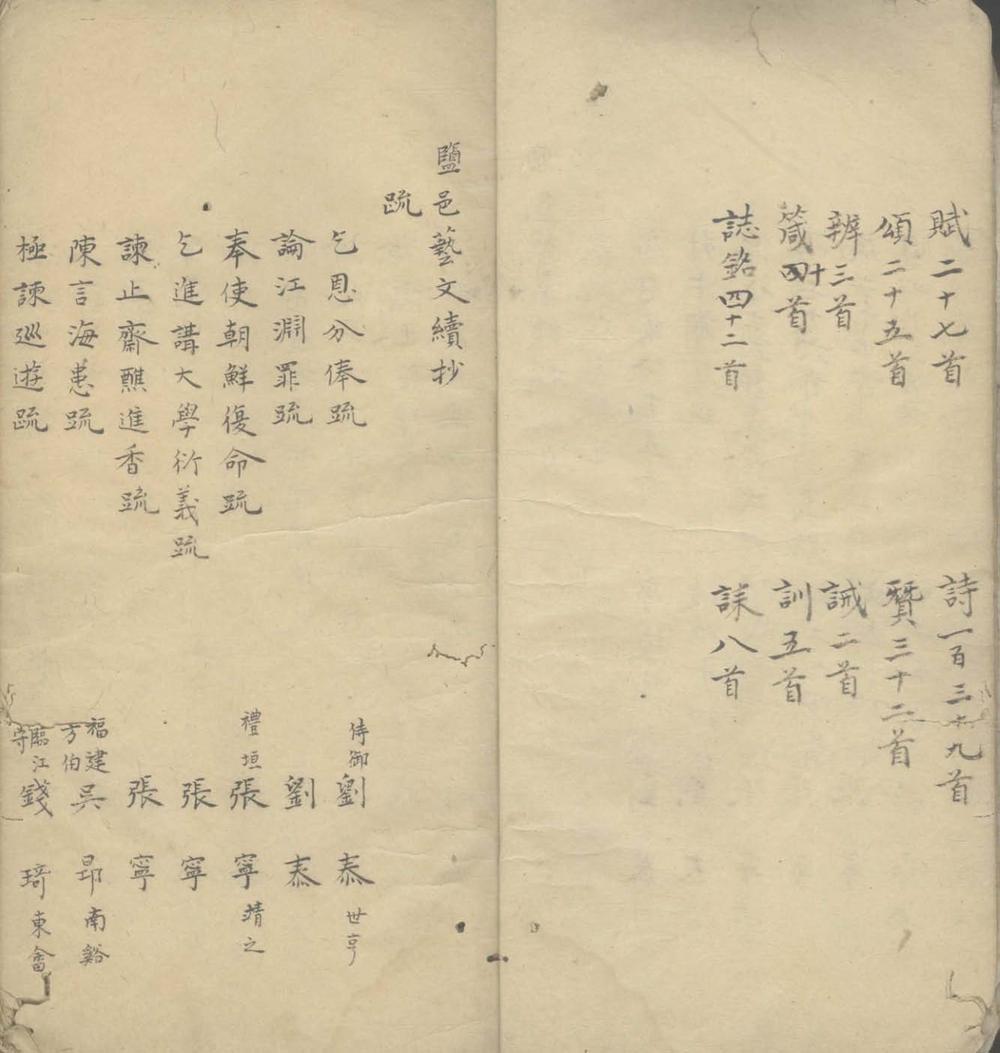 賦二十七首 詩一百三十九首
頌二十五首 贊三十二首
辨三首 誡二首
箴四十首 訓五首
誌銘四十二首 誄八首
鹽邑藝文續抄
疏
乞恩分俸疏 侍御劉泰世亨
論江淵罪疏 劉泰
奉使朝鮮復命疏 禮垣張寧靖之
乞進講大學衍義疏 張寧
諫止齋醮進香疏 張寧
陳言海患疏 福建方伯吳昂南谿
極諫巡遊疏 臨江守錢琦東畬